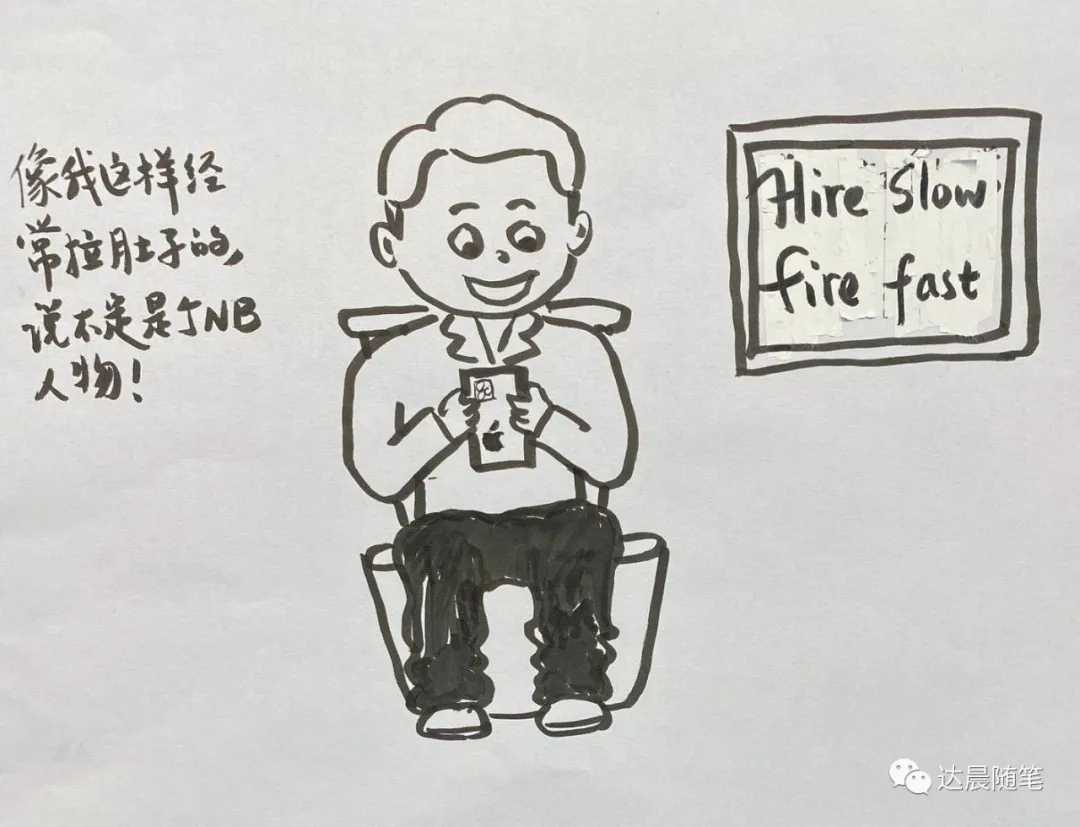 像我这样经
常拉肚子的,
说不定是个NB
人物!
Hire Slow
fire fast
达晨随笔